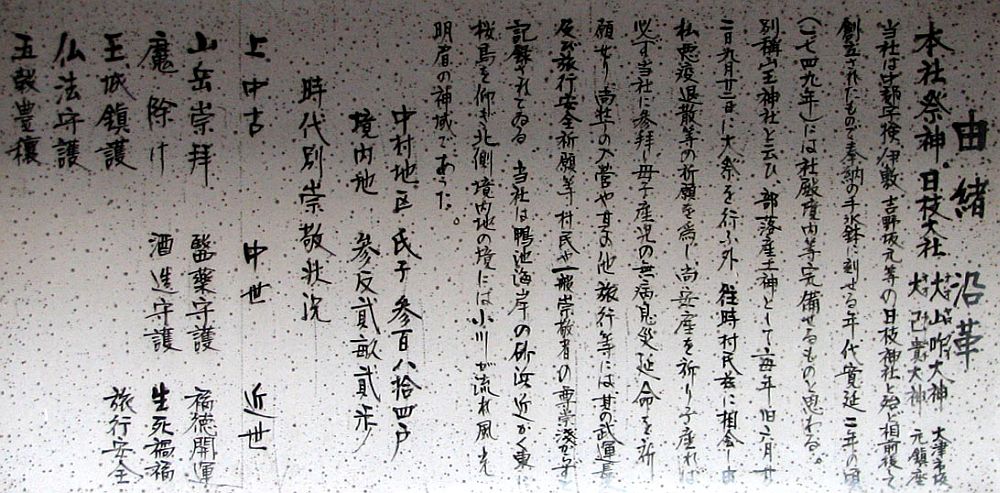 由緒沿革
本社祭神・日枝大社 大山咋大神 大津市坂
大己貴大神 元鎮座
当社は中郡宇検、伊敷、吉野坂元等の日枝神社と殆ど相前後して
創立されたもので奉納の手水鉢に刻せる年代寛延二年の頃
(一七四九年)には社殿境内等完備せるものと思わる。
別稱山王神社と云ひ部落産土神として毎年旧六月廿
二日九月廿二日に大祭を行ふ外、往時村民玆に相会し
払悪疫退散等の祈願を爲し尚安産を祈り子産れば
必ず当社に参拝し母子産児の無病息災延命を祈
願せり尚牲の入営や其の他旅行等には其の武運長
及び旅行安全祈願等村民や一般崇敬者の尊崇浅からず
記録されてゐる 当社は鴨池海岸の砂浜近かく東に
桜島を仰ぎ北側境内地の境には小川が流れ風光
明眉の神域であった。
中村地区 氏子 参百八拾四戸
境内地 参反貳畝貳歩
時代別崇敬状況
上中古 中世 近世
山岳崇拝 醫薬守護 福徳開運
魔除け 酒造守護 生死禍福
王城鎮護 旅行安全
仏法守護
五穀豊穣